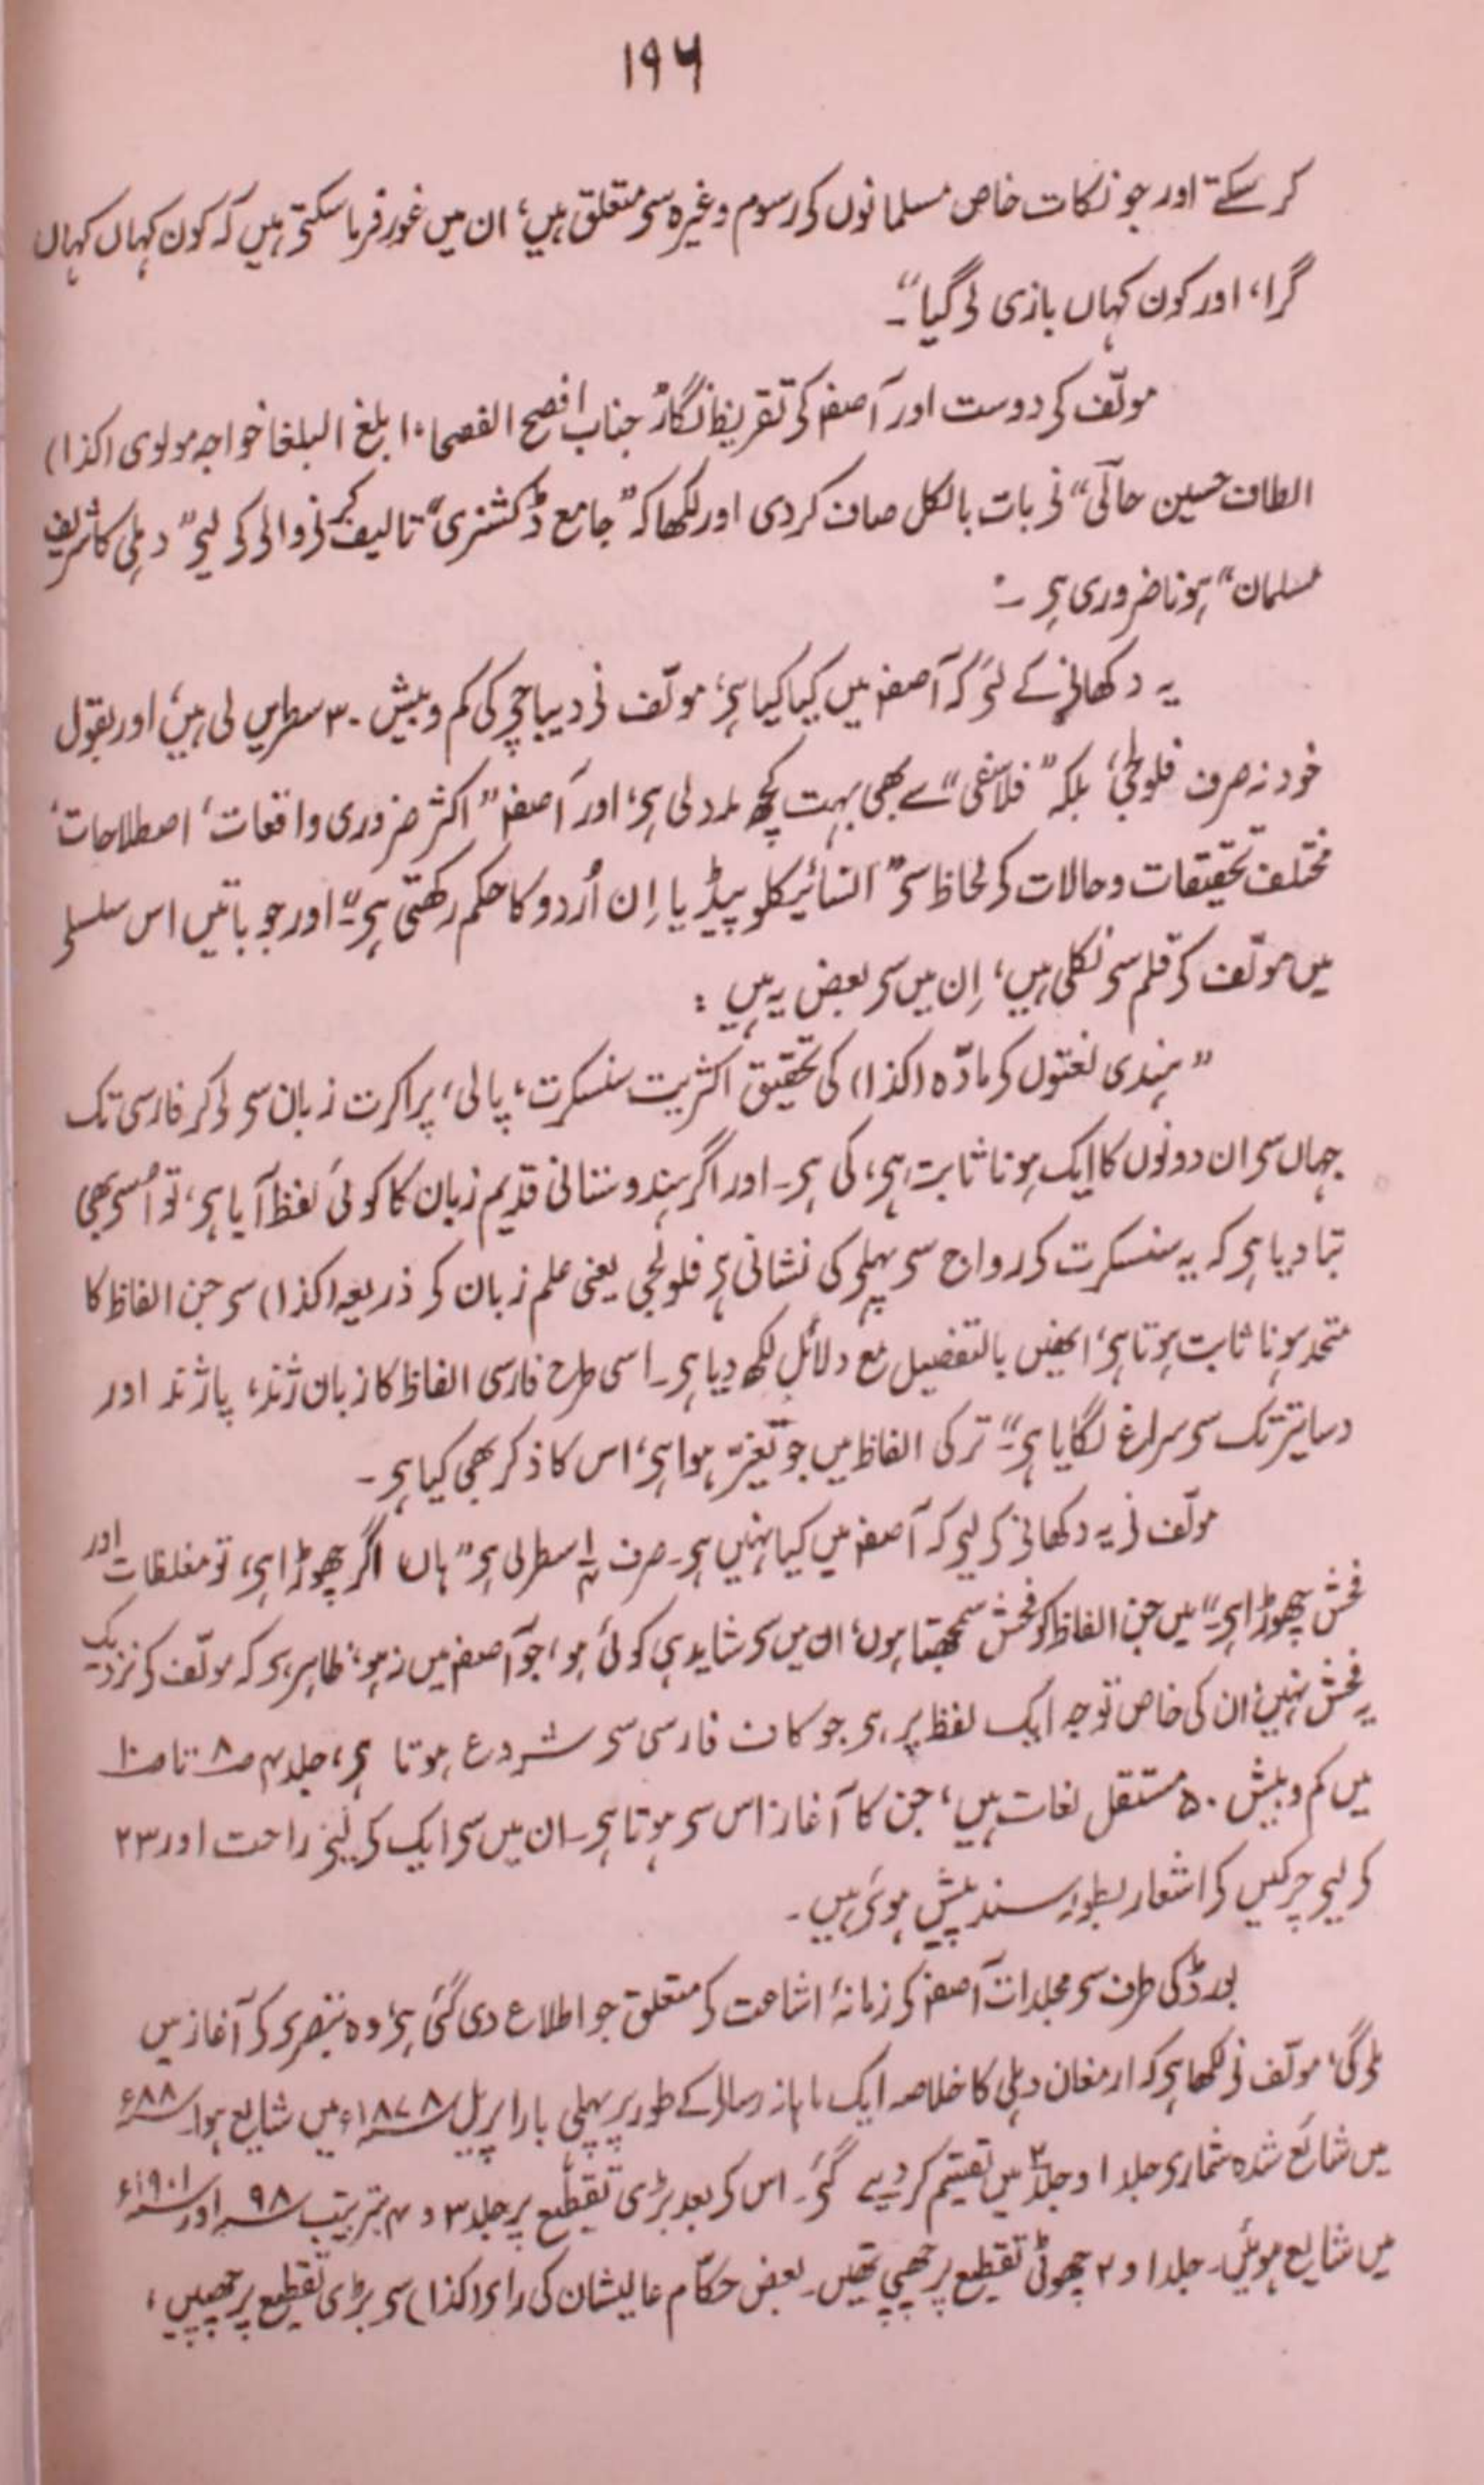 ۱۹۶
کر سکتے اور جو نکات خاص مسلمانوں کی رسوم وغیرہ سی متعلق ہیں، ان میں غور فرما سکتی ہیں کہ کون کہاں کہاں
گرا، اور کون کہاں بازی لی گیا“۔
مولّف کی دوست اور آصفہ کی تقریظ نگار ”جناب افصح الفصحاء ابلغ البلغا خواجہ مولوی (کذا)
الطاف حسین حالی“ نی بات بالکل صاف کر دی اور لکھا کہ ”جامع ڈکشنری“ تالیف کرنی والی کی لیی ”دہلی کا شریف
مسلمان“ ہونا ضروری ہی ۔
یہ دکھانی کے لئی کہ آصفہ میں کیا کیا ہی، مولّف نی دیباچی کی کم و بیش ۳۰ سطریں لی ہیں، اور بقول
خود نہ صرف فلولجی، بلکہ ”فلاسفی“ سے بھی بہت کچھ مدد لی ہی، اور آصفہ ”اکثر ضروری واقعات، اصطلاحات،
مختلف تحقیقات و حالات کی لحاظ سی ”انسائیکلو پیڈیا اِن اُردو کا حکم رکھتی ہی“۔ اور جو باتیں اس سلسلی
میں مولّف کی قلم سی نکلی ہیں، اِن میں سی بعض یہ ہیں :
”ہندی لغتوں کی مادّہ (کذا) کی تحقیق اکثریت سنسکرت، پالی، پراکرت زبان سی لی کر فارسی تک
جہاں سی ان دونوں کا ایک ہونا ثابت ہی، کی ہی۔ اور اگر ہندوستانی قدیم زبان کا کوئی لفظ آیا ہی، تو اُسی بھی
بتا دیا ہی کہ یہ سنسکرت کی رواج سی پہلی کی نشانی ہی فلولجی یعنی علم زبان کی ذریعہ (کذا) سی جن الفاظ کا
متحد ہونا ثابت ہوتا ہی، انھیں بالتفصیل مع دلائل لکھ دیا ہی۔ اسی طرح فارسی الفاظ کا زبان ژند، پاژند اور
دساتیر تک سی سراغ لگایا ہی“۔ ترکی الفاظ میں جو تغیّر ہوا ہی، اس کا ذکر بھی کیا ہی ۔
مولّف نی یہ دکھانی کی لیی کہ آصفہ میں کیا نہیں ہی۔ صرف سطر لی ہی ”ہاں اگر چھوڑا ہی، تو مغلظات اور
فحش چھوڑا ہی“۔ میں جن الفاظ کو فحش سمجھتا ہوں، ان میں سی شاید ہی کوئی ہو، جو آصفہ میں نہ ہو، ظاہر ہی کہ مولّف کی نزدیک
یہ فحش نہیں؛ ان کی خاص توجہ ایک لفظ پر ہی جو کاف فارسی سی شروع ہوتا ہی، جلد ۴ ص ۸ تا ص ۱۰
میں کم و بیش ۵۰ مستقل لغات ہیں، جن کا آغاز اس سی ہوتا ہی۔ ان میں سی ایک کی لیی راحت اور ۲۳
کی لیی چرکیں کی اشعار بطور سند پیش ہوئی ہیں ۔
بورڈ کی طرف سی مجلدات آصفہ کی زمانۂ اشاعت کی متعلق جو اطلاع دی گئی ہی، وہ تبصری کی آغاز میں
ملی گی، مولّف نی لکھا ہی کہ ارمغان دہلی کا خلاصہ ایک ماہانہ رسالی کے طور پر پہلی بار اپریل ۱۸۷۸ء میں شایع ہوا۔ ۸۸ء
میں شائع شدہ شماری جلد ۱ و جلد ۲ میں تقسیم کر دیے گئی۔ اس کی بعد بڑی تقطیع پر جلد ۳ و ۴ بترتیب ۹۸ اور ۱۹۰۱ء
میں شایع ہوئیں۔ جلد ۱ و ۲ چھوٹی تقطیع پر چھپی تھیں۔ بعض حکّام عالیشان کی رای (کذا) سی بڑی تقطیع پر چھپیں ،